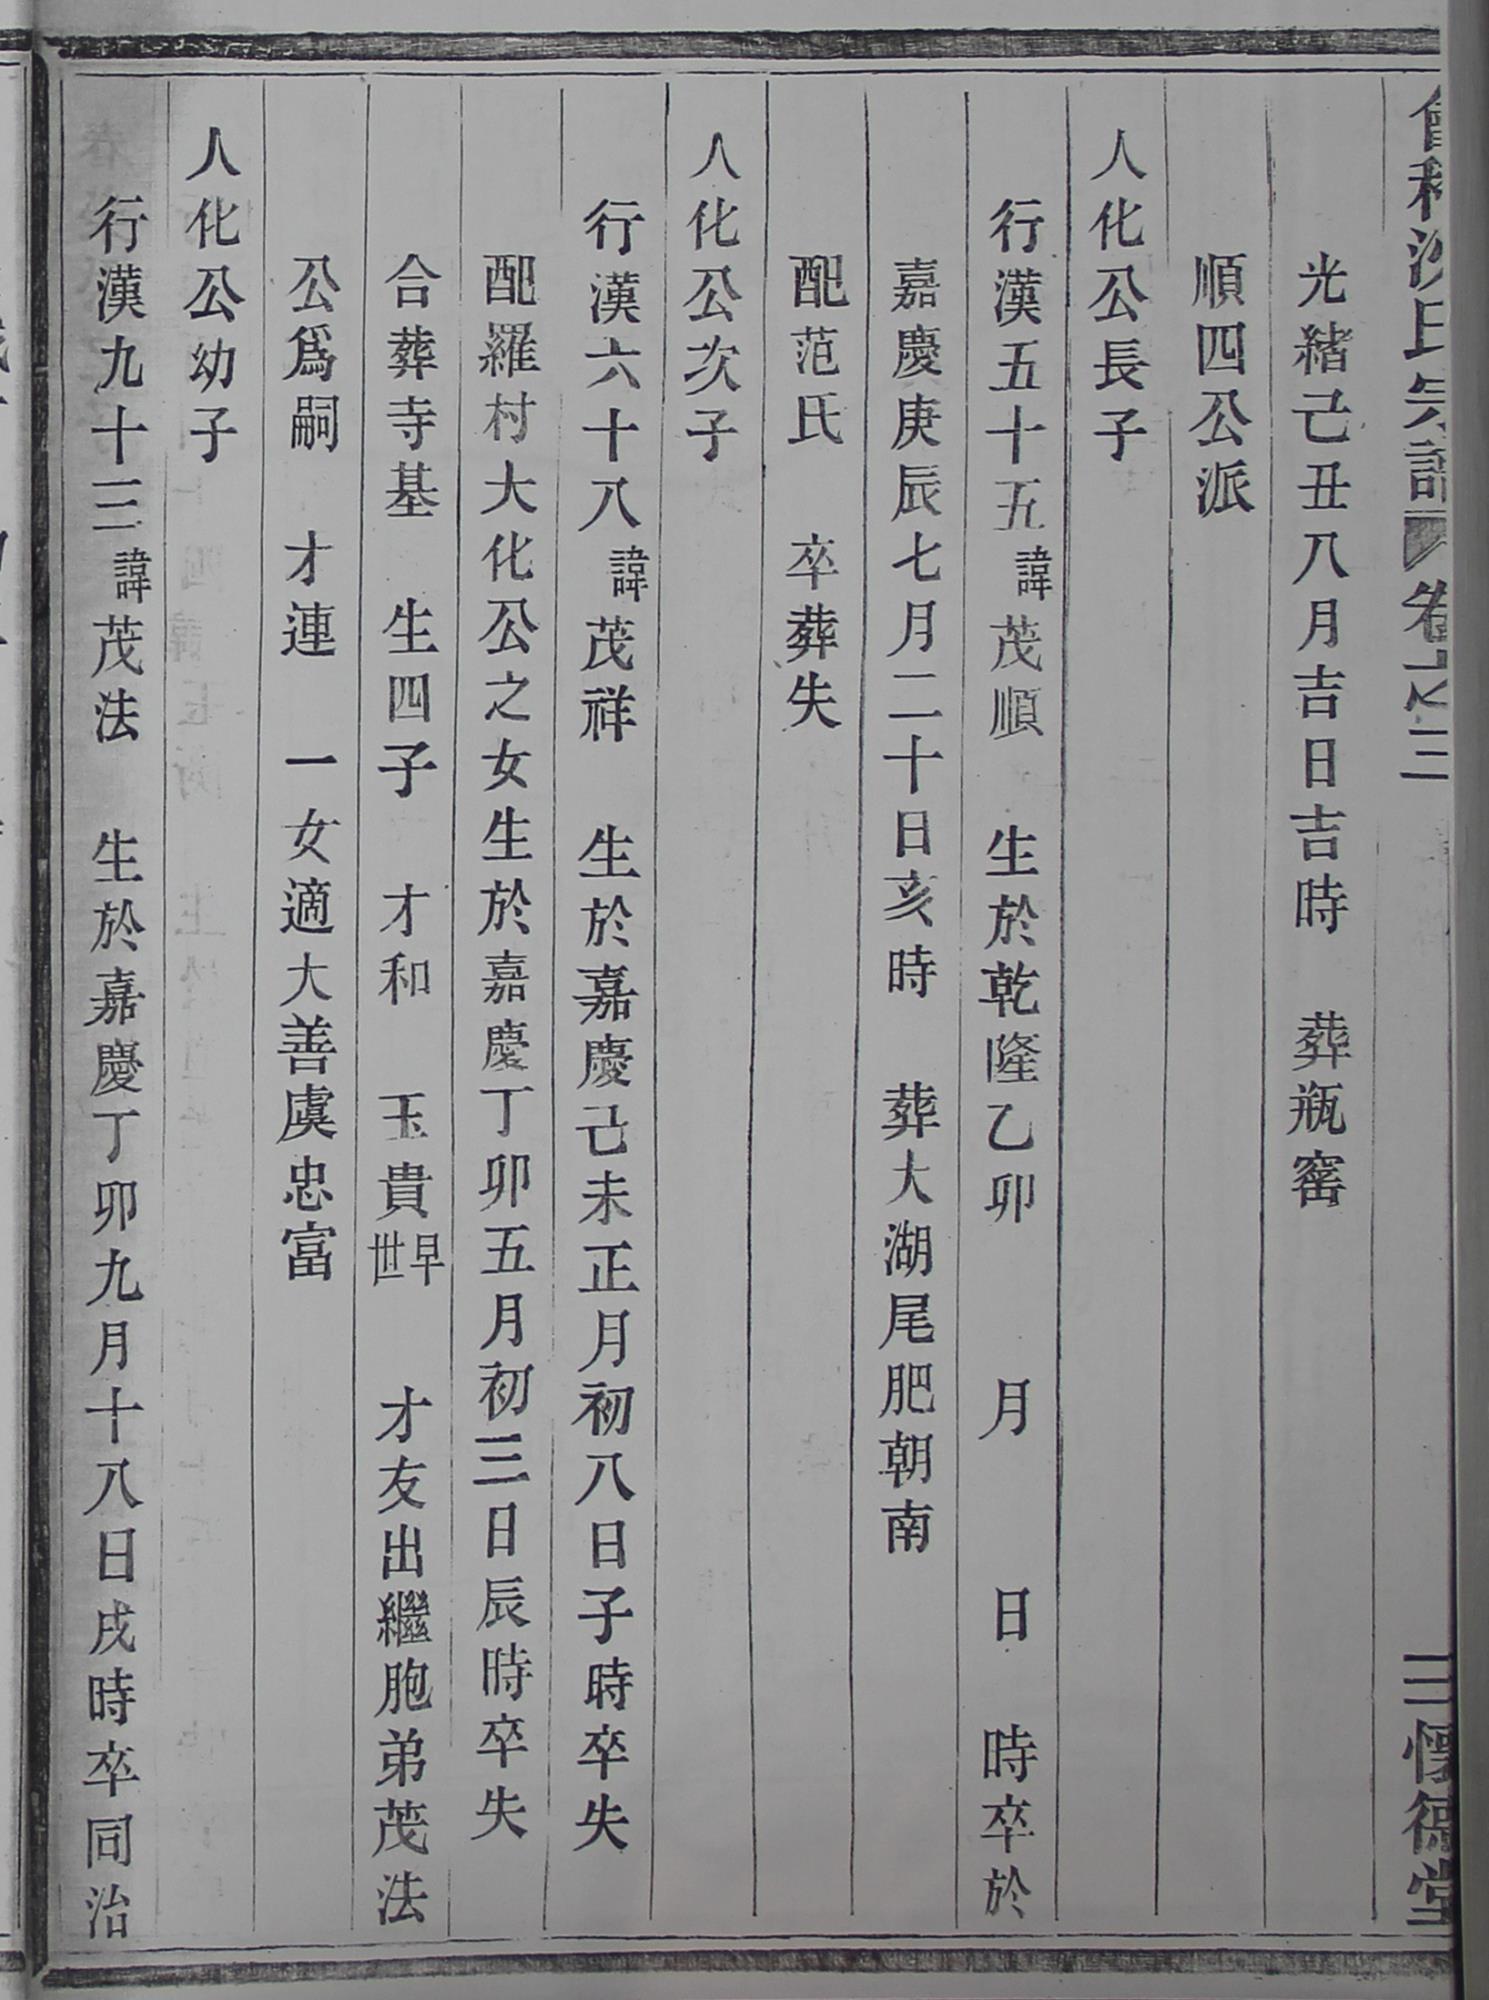 氏宗譜 卷之三 三 懷德堂
光緒己丑八月吉日吉時 葬瓶窰
順四公派
人化公長子
行漢五十五諱茂順 生於乾隆乙卯 月 日 時卒於
嘉慶庚辰七月二十日亥時 葬大湖尾肥朝南
配范氏 卒葬失
人化公次子
行漢六十八諱茂祥 生於嘉慶己未正月初八日子時卒失
配羅村大化公之女生於嘉慶丁卯五月初三日辰時卒失
合葬寺基 生四子 才和 玉貴早世 才友出繼胞弟茂法
公爲嗣 才連 一女適大善虞忠富
人化公幼子
行漢九十三諱茂法 生於嘉慶丁卯九月十八日戌時卒同治